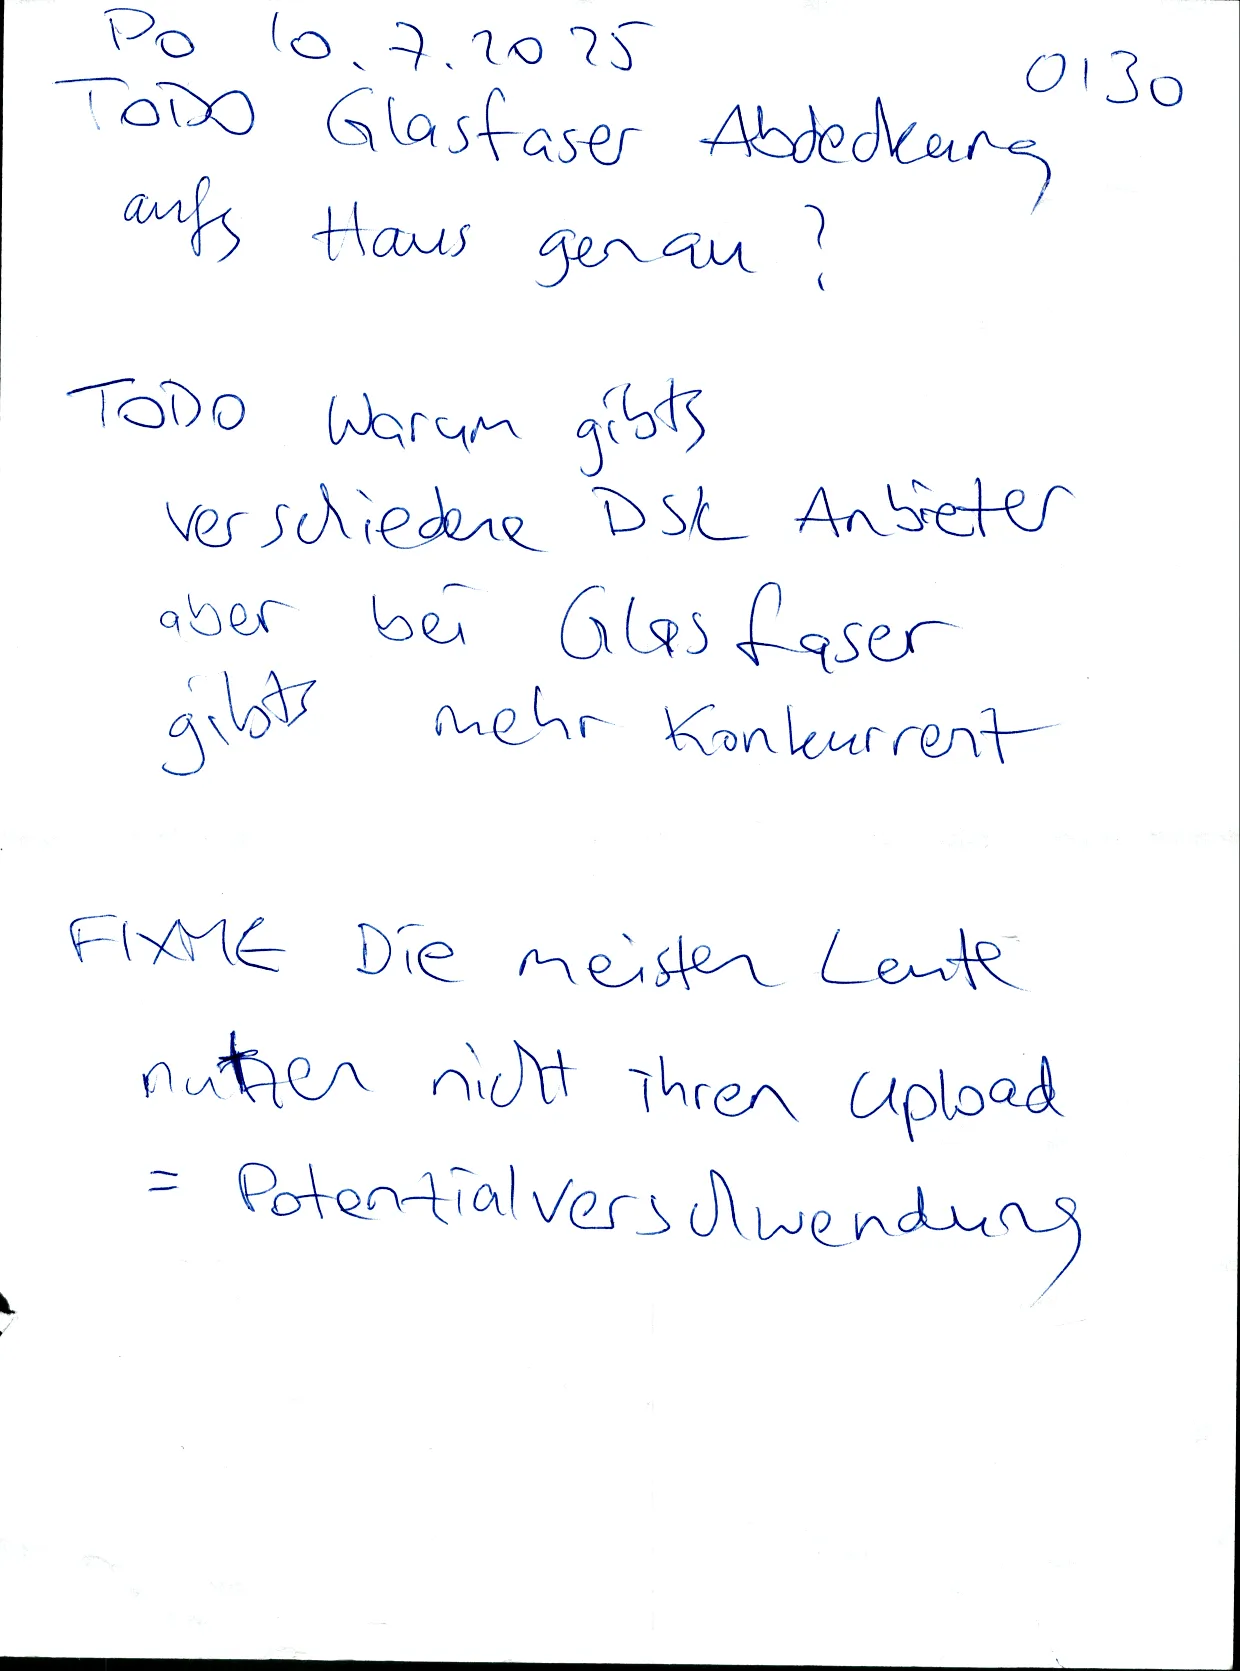 Do 10.7.2025 0130
TODO Glasfaser Abdeckung
aufs Haus genau?
TODO Warum gibts
verschiedene DSL Anbieter
aber bei Glasfaser
gibts mehr Konkurrent
FIXME Die meisten Leute
nutzen nicht ihren Upload
= Potentialverschwendung